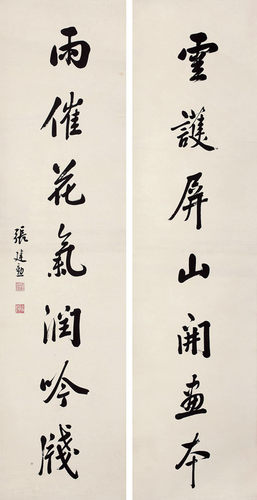 雲護屏山開畫本
雨催花氣潤吟牋
張建勳